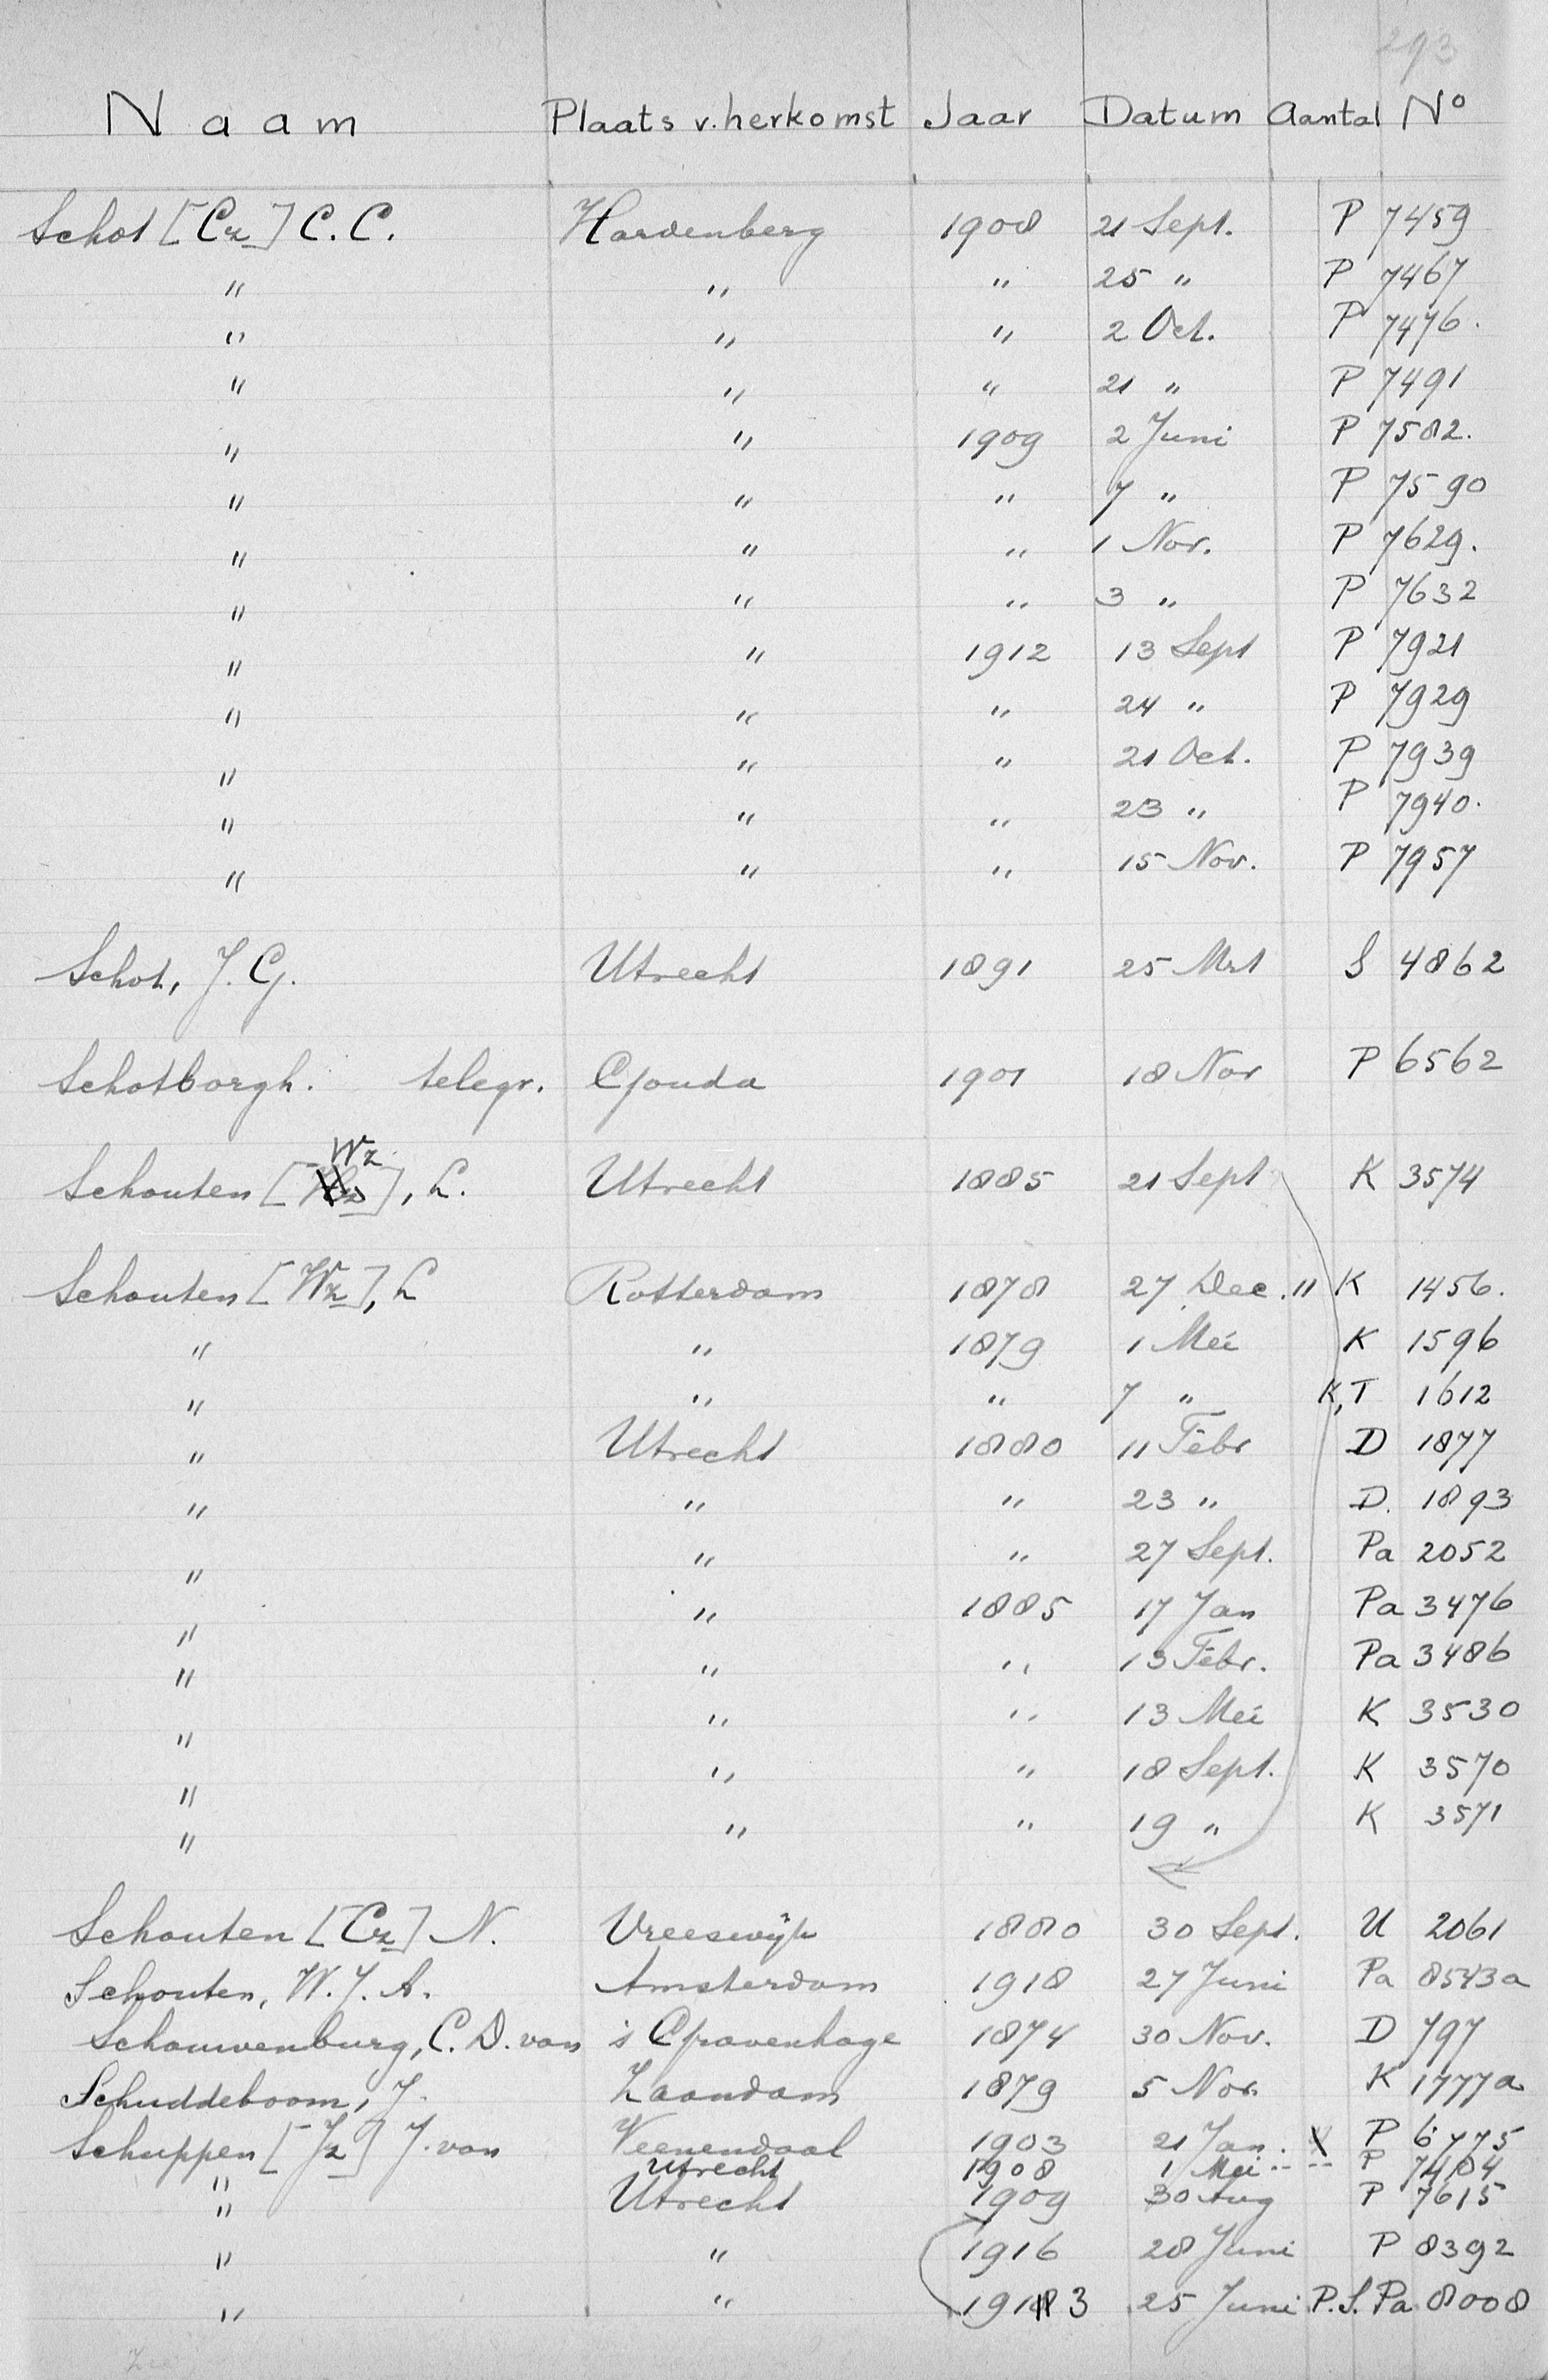 293
Naam Plaats v. herkomst Jaar Datum Aantal No
Schot [Cz] C.C. Hardenberg 1908 21 Sept. P 7459
" " " 25 " P 7467
" " " 2 Oct. P 7476.
" " " 21 " P 7491
" " 1909 2 Juni P 7582.
" " " 7 " P 7590
" " " 1 Nov. P 7629.
" " " 3 " P 7632
" " 1912 13 Sept P 7921
" " " 24 " P 7929
" " " 21 Oct. P 7939
" " " 23 " P 7940.
" " " 15 Nov. P 7957
Schot, J.G. Utrecht 1891 25 Mrt S 4862
Schotborgh. telegr. Gouda 1901 18 Nov P 6562
Schouten [Wz], L. Utrecht 1885 21 Sept K 3574
Schouten [Wz], L Rotterdam 1878 27 Dec. " K 1456.
" " 1879 1 Mei K 1596
" " " 7 " K,T 1612
" Utrecht 1880 11 Febr D 1877
" " " 23 " D. 1893
" " " 27 Sept. Pa 2052
" " 1885 17 Jan Pa 3476
" " " 13 Febr. Pa 3486
" " " 13 Mei K 3530
" " " 18 Sept. K 3570
" " " 19 " K 3571
Schouten [Cz] N. Vreeswijk 1880 30 Sept. U 2061
Schouten, W.J.A. Amsterdam 1918 27 Juni Pa 8543a
Schouwenburg, C.D. van 's Gravenhage 1874 30 Nov. D 797
Schuddeboom, J. Zaandam 1879 5 Nov. K 1777a
Schuppen [Jz] J. van Veenendaal 1903 21 Jan. P 6775
" Utrecht 1908 1 Mei P 7404
" Utrecht 1909 30 Aug P 7615
" " 1916 28 Juni P 8392
" " 1913 25 Juni P.S.Pa 8008